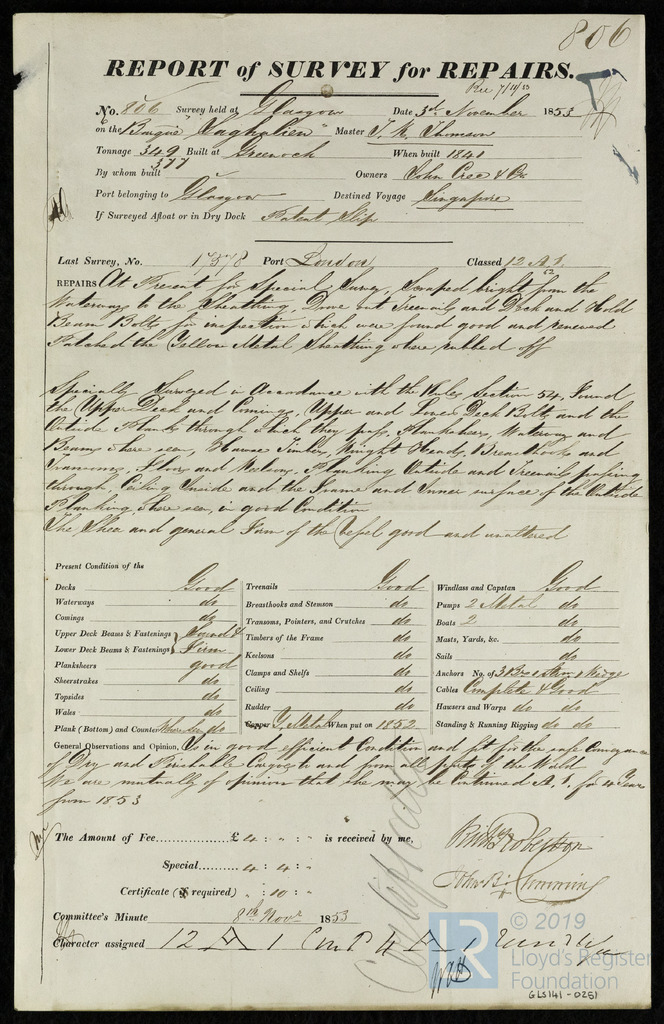 806
REPORT of SURVEY for REPAIRS.
Rec 7/11/53
No. 806 Survey held at Glasgow Date 3d November 1853
on the Barque "Saghalien" Master T. R. Thomson
Tonnage 349 Built at Greenock When built 1840
377
By whom built Owners John Cree & Co
Port belonging to Glasgow Destined Voyage Singapore
If Surveyed Afloat or in Dry Dock Patent Slip
Last Survey, No. 1378 Port London Classed 12 A1.
REPAIRS At Present for Special Survey, Scraped bright from the
Waterways to the Sheathing, Drove out Treenails and Deck and Hold
Beam Bolts for inspection which were found good and renewed
Patched the Yellow Metal Sheathing where rubbed off
Specially Surveyed in Accordance with the Rules Section 54, Found
the Upper Deck and Comings, Upper and Lower Deck Bolts and the
Outside Planks through which they pass, Planksheers, Waterways and
Beams where seen, Hawse Timbers, Knight Heads, Breasthooks and
Transoms, Floors and Keelsons, Planking Outside and Treenails passing
through, Ceiling Inside and the Frame and Inner surface of the Outside
Planking where seen, in good Condition
The Sheer and general Form of the Vessel good and unaltered
Present Condition of the
Decks Good
Waterways do
Comings do
Upper Deck Beams & Fastenings } Sound &
Lower Deck Beams & Fastenings } Firm
Planksheers good
Sheerstrakes do
Topsides do
Wales do
Plank (Bottom) and Counter Where seen do
Treenails Good
Breasthooks and Stemson do
Transoms, Pointers, and Crutches do
Timbers of the Frame do
Keelsons do
Clamps and Shelfs do
Ceiling do
Rudder do
Copper Y. Metal When put on 1852
Windlass and Capstan Good
Pumps 2 Metal do
Boats 2 do
Masts, Yards, &c. do
Sails do
Anchors No. of 3 Brs & Kedge
Cables Complete & Good
Hawsers and Warps do do
Standing & Running Rigging do do
General Observations and Opinion, Is in good efficient Condition and fit for the safe Conveyance
of Dry and Perishable Cargoes to and from all parts of the World
We are mutually of opinion that she may be Continued A.1. for 4 Years
from 1853
The Amount of Fee £ 4 : " : " is received by me,
Special 4 : 4 : "
Certificate (if required) " : 10 : "
Certificate
Committee's Minute 8th Novr 1853
Character assigned 12 A 1 Contd 4 A 1
© 2019
LR
Lloyd's Register
Foundation
GLS141 - 0251